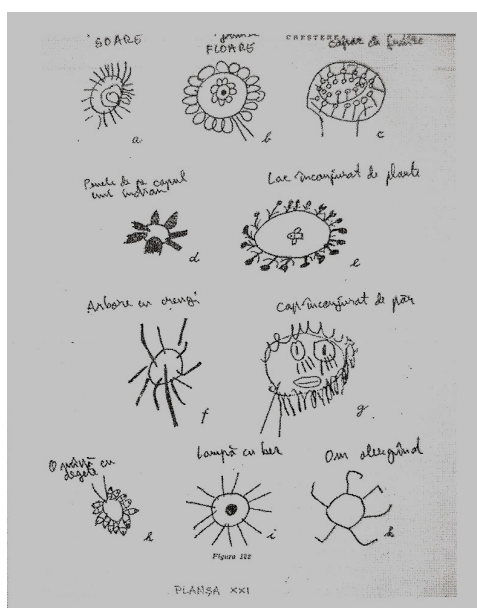 SOARE
FLOARE
CRESTERE
a
b
c
Penele de pe capul
unui indian
Lac inconjurat de plante
d
e
Arbore cu crengi
Cap inconjurat de păr
f
g
O mînă cu
degete
Lampă cu bec
Om alergînd
h
i
k
Figura 122
PLANȘA XXI